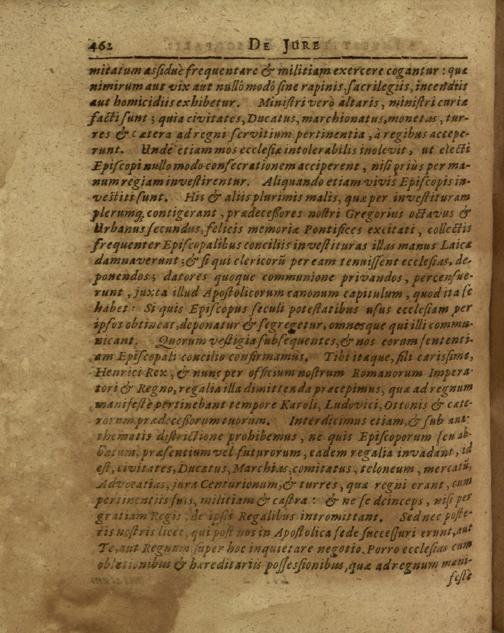 462 DE JURE
mitatum assiduè frequentare & militiam exercere cogantur: quæ
nimirum aut vix aut nullô modô sine rapinis, sacrilegiis, incendiis
aut homicidiis exhibetur. Ministri verò altaris, ministri curiæ
facti sunt; quia civitates, Ducatus, marchionatus, monetas, tur-
res & cætera ad regni servitium pertinentia, à regibus accepe-
runt. Unde etiam mos ecclesiæ intolerabilis inolevit, ut electi
Episcopi nullo modo consecrationem acciperent, nisi priùs per ma-
num regiam investirentur. Aliquando etiam vivis Episcopis in-
vestiti sunt. His & aliis plurimis malis, quæ per investituram
plerumq; contigerant, prædecessores nostri Gregorius octavus &
Urbanus secundus, felicis memoriæ Pontifices excitati, collectis
frequenter Episcopalibus conciliis investituras illas manus Laicæ
damnaverunt; & si qui clericorũ per eam tenuissent ecclesias, de-
ponendos; datores quoque communione privandos, percensue-
runt, juxta illud Apostolicorum canonum capitulum, quod ita se
habet: Si quis Episcopus seculi potestatibus usus ecclesiam per
ipsos obtineat, deponatur & segregetur, omnesque qui illi commu-
nicant. Quorum vestigia subsequentes, & nos eorum sententi-
am Episcopali concilio confirmamus. Tibi itaque, fili carissime,
Henrici Rex, & nunc per officium nostrum Romanorum Impera-
tori & Regno, regalia illa dimittenda præcepimus, quæ ad regnum
manifestè pertinebant tempore Karoli, Ludovici, Ottonis & cæte-
rorum prædecessorum tuorum. Interdicimus etiam, & sub ana-
thematis districtione prohibemus, ne quis Episcoporum seu ab-
batum, præsentium vel futurorum, eadem regalia invadant, id
est, civitates, Ducatus, Marchias, comitatus, teloneum, mercatũ,
Advocatias, jura Centurionum, & turres, quæ regni erant, cum
pertinentiis suis, militiam & castra: & ne se deinceps, nisi per
gratiam Regis, de ipsis Regalibus intromittant. Sed nec poste-
ris nostris licet, qui post nos in Apostolica sede successuri erunt, aut
Te, aut Regnum super hoc inquietare negotio. Porro ecclesias cum
oblationibus & hæreditariis possessionibus, quæ ad regnum mani-
festè